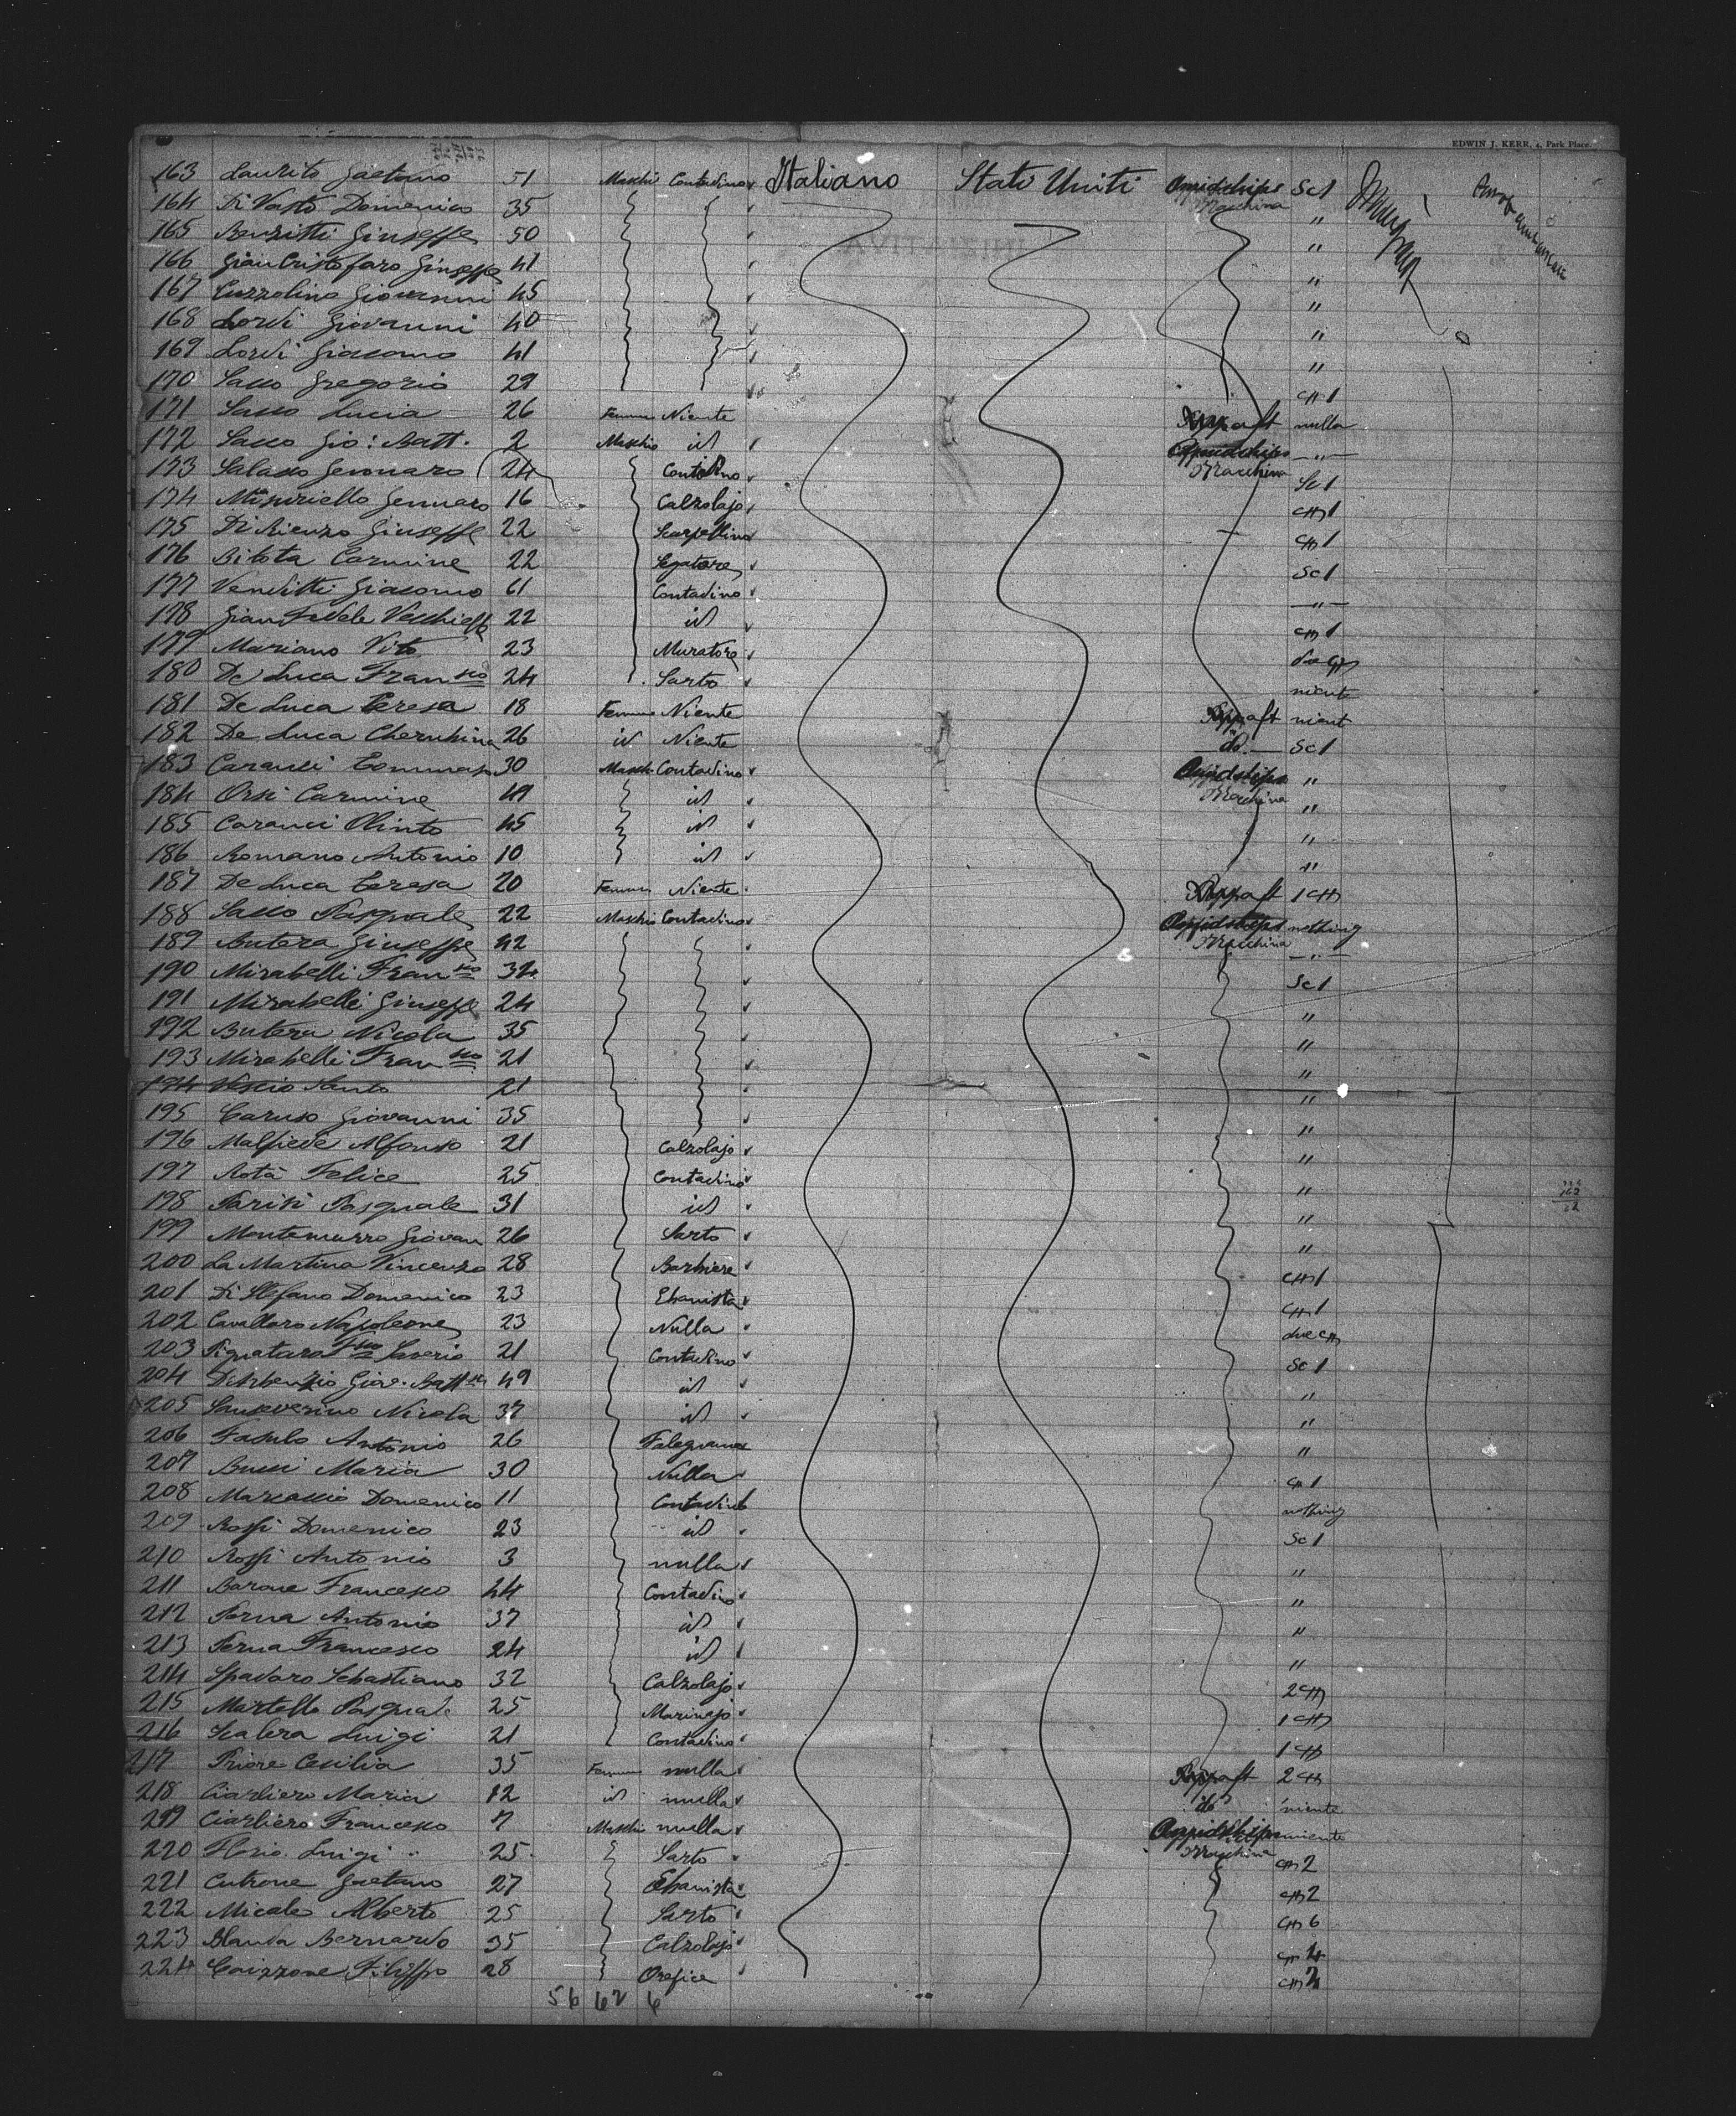 EDWIN J. KERR, 4, Park Place.
163 Laurito Gaetano 51 Maschi Contadino Italiano Stati Uniti Amidships Macchina Sc 1
164 Di Vasto Domenico 35 "
165 Benzitti Giuseppe 50 "
166 Gian Cristofaro Giuseppe 41 "
167 Cuzzolino Giovanni 45 "
168 Lordi Giovanni 40 "
169 Lordi Giacomo 41 "
170 Sasso Gregorio 29 CH 1
171 Sasso Lucia 26 Femm Niente aft nulla
172 Sasso Gio: Batt. 2 Maschio id Macchina "
173 Salasso Gennaro 24 Contadino Sc 1
174 Gennaro 16 Calzolajo CH 1
175 Di Rienzo Giuseppe 22 Scarpellino CH 1
176 Bitota Carmine 22 Segatore Sc 1
177 Venditti Giacomo 61 Contadino "
178 Gianfedele 22 id CH 1
179 Mariano Vito 23 Muratore due CH
180 De Luca Fransco 24 Sarto niente
181 De Luca Teresa 18 Femm Niente aft nient
182 De Luca Cherubina 26 id Niente do Sc 1
183 Caranci Tommaso 30 Masch Contadino Amidships Macchina "
184 Orsi Carmine 49 id "
185 Caranci Olinto 45 id "
186 Romano Antonio 10 id "
187 De Luca Teresa 20 Femm Niente aft 1 CH
188 Sasso Pasquale 22 Maschio Contadino Macchina nothing
189 Butera Giuseppe 42 "
190 Mirabelli Fransco 34 Sc 1
191 Mirabelli Giuseppe 24 "
192 Butera Nicola 35 "
193 Mirabelli Fransco 21 "
194 Vescio Santo 21 "
195 Caruso Giovanni 35 "
196 Alfonso 21 Calzolajo "
197 Rotà Felice 25 Contadino "
198 Parisi Pasquale 31 id "
199 Montemurro Giovan 26 Sarto "
200 La Martina Vincenzo 28 Barbiere CH 1
201 Di Stefano Domenico 23 Ebanista CH 1
202 Cavallaro Napoleone 23 Nulla due CH
203 Pignataro Fsco Saverio 21 Contadino Sc 1
204 Giov. Battsta 49 id "
205 Sanseverino Nicola 37 id "
206 Fasulo Antonio 26 Falegname "
207 Bucci Maria 30 Nulla CH 1
208 Marcassio Domenico 11 Contadino nothing
209 Rossi Domenico 23 id Sc 1
210 Rossi Antonio 3 nulla "
211 Barone Francesco 44 Contadino "
212 Perna Antonio 37 id "
213 Perna Francesco 24 id "
214 Spadaro Sebastiano 32 Calzolajo 2 CH
215 Martello Pasquale 25 Marinajo 1 CH
216 Scalera Luigi 21 Contadino 1 CH
217 Priore Cecilia 35 Femm nulla aft 2 CH
218 Ciarliero Maria 12 id nulla do niente
219 Ciarliero Francesco 7 Maschi nulla Macchina niente
220 Florio Luigi 25 Sarto CH 2
221 Cutrone Gaetano 27 Ebanista CH 2
222 Micale Alberto 25 Sarto CH 6
223 Blanda Bernardo 35 Calzolajo CH 4
224 Caizzone Filippo 28 Orefice CH 2
56 62 6